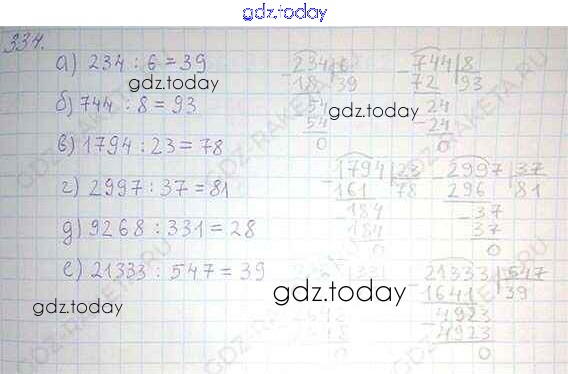 gdz.today
334.
а) 234 : 6 = 39
б) 744 : 8 = 93
в) 1794 : 23 = 78
г) 2997 : 37 = 81
д) 9268 : 331 = 28
е) 21333 : 547 = 39
234 6
18 39
54
54
0
744 8
72 93
24
24
0
1794 23
161 78
184
184
0
2997 37
296 81
37
37
0
331
0
21333 547
1641 39
4923
4923
0
gdz.today
gdz.today
gdz.today
gdz.today
GDZ-RAKETA.RU